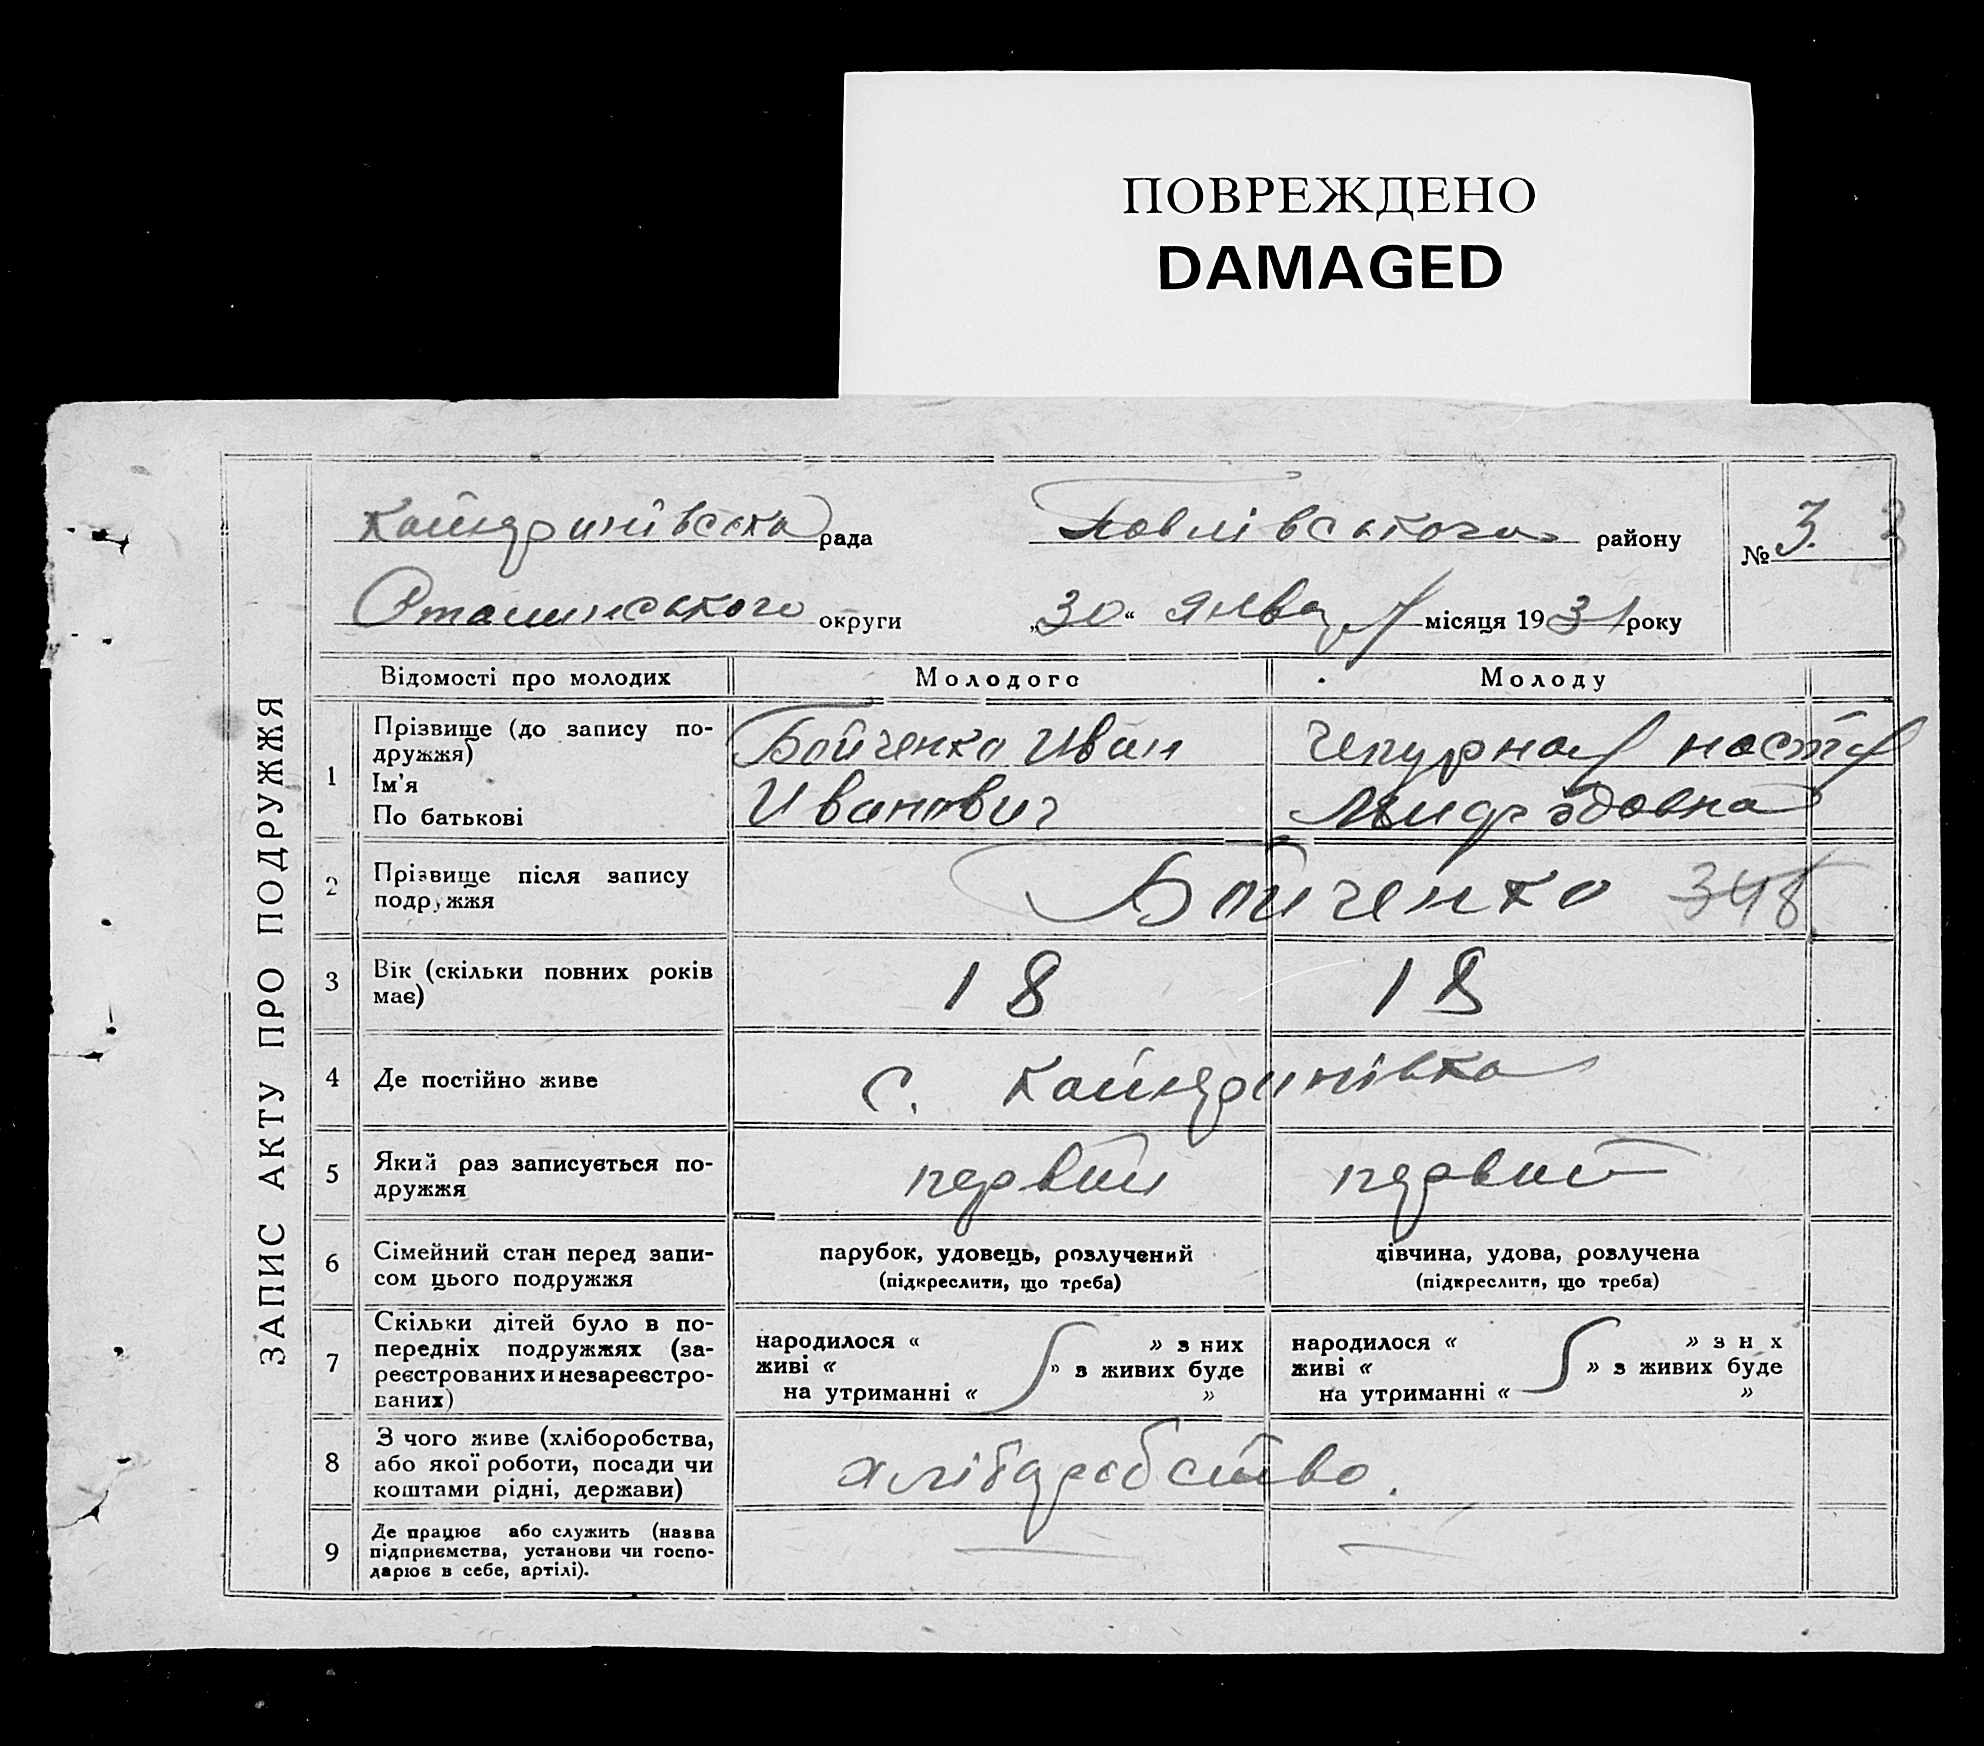 ПОВРЕЖДЕНО
DAMAGED
ЗАПИС АКТУ ПРО ПОДРУЖЖЯ
рада
Павлівського району
№ 3.
Сталинського округи
„30“ января місяця 1931 року
Відомості про молодих
Молодого
Молоду
1
Прізвище (до запису по-
дружжя)
Ім'я
По батькові
Бойченко Иван
Иванович
Чепурная Настя
2
Прізвище після запису
подружжя
Бойченко 348
3
Вік (скільки повних років
має)
18
18
4
Де постійно живе
с.
5
Який раз записується по-
дружжя
первий
первий
6
Сімейний стан перед запи-
сом цього подружжя
парубок, удовець, розлучений
(підкреслити, що треба)
дівчина, удова, розлучена
(підкреслити, що треба)
7
Скільки дітей було в по-
передніх подружжях (за-
реєстрованих и незареєстро-
ваних)
народилося « » з них
живі « » з живих буде
на утриманні « »
народилося « » з н х
живі « » з живих буде
на утриманні « »
8
З чого живе (хліборобства,
або якої роботи, посади чи
коштами рідні, держави)
хліборобство.
9
Де працює або служить (назва
підприємства, установи чи госпо-
дарює в себе, артілі).